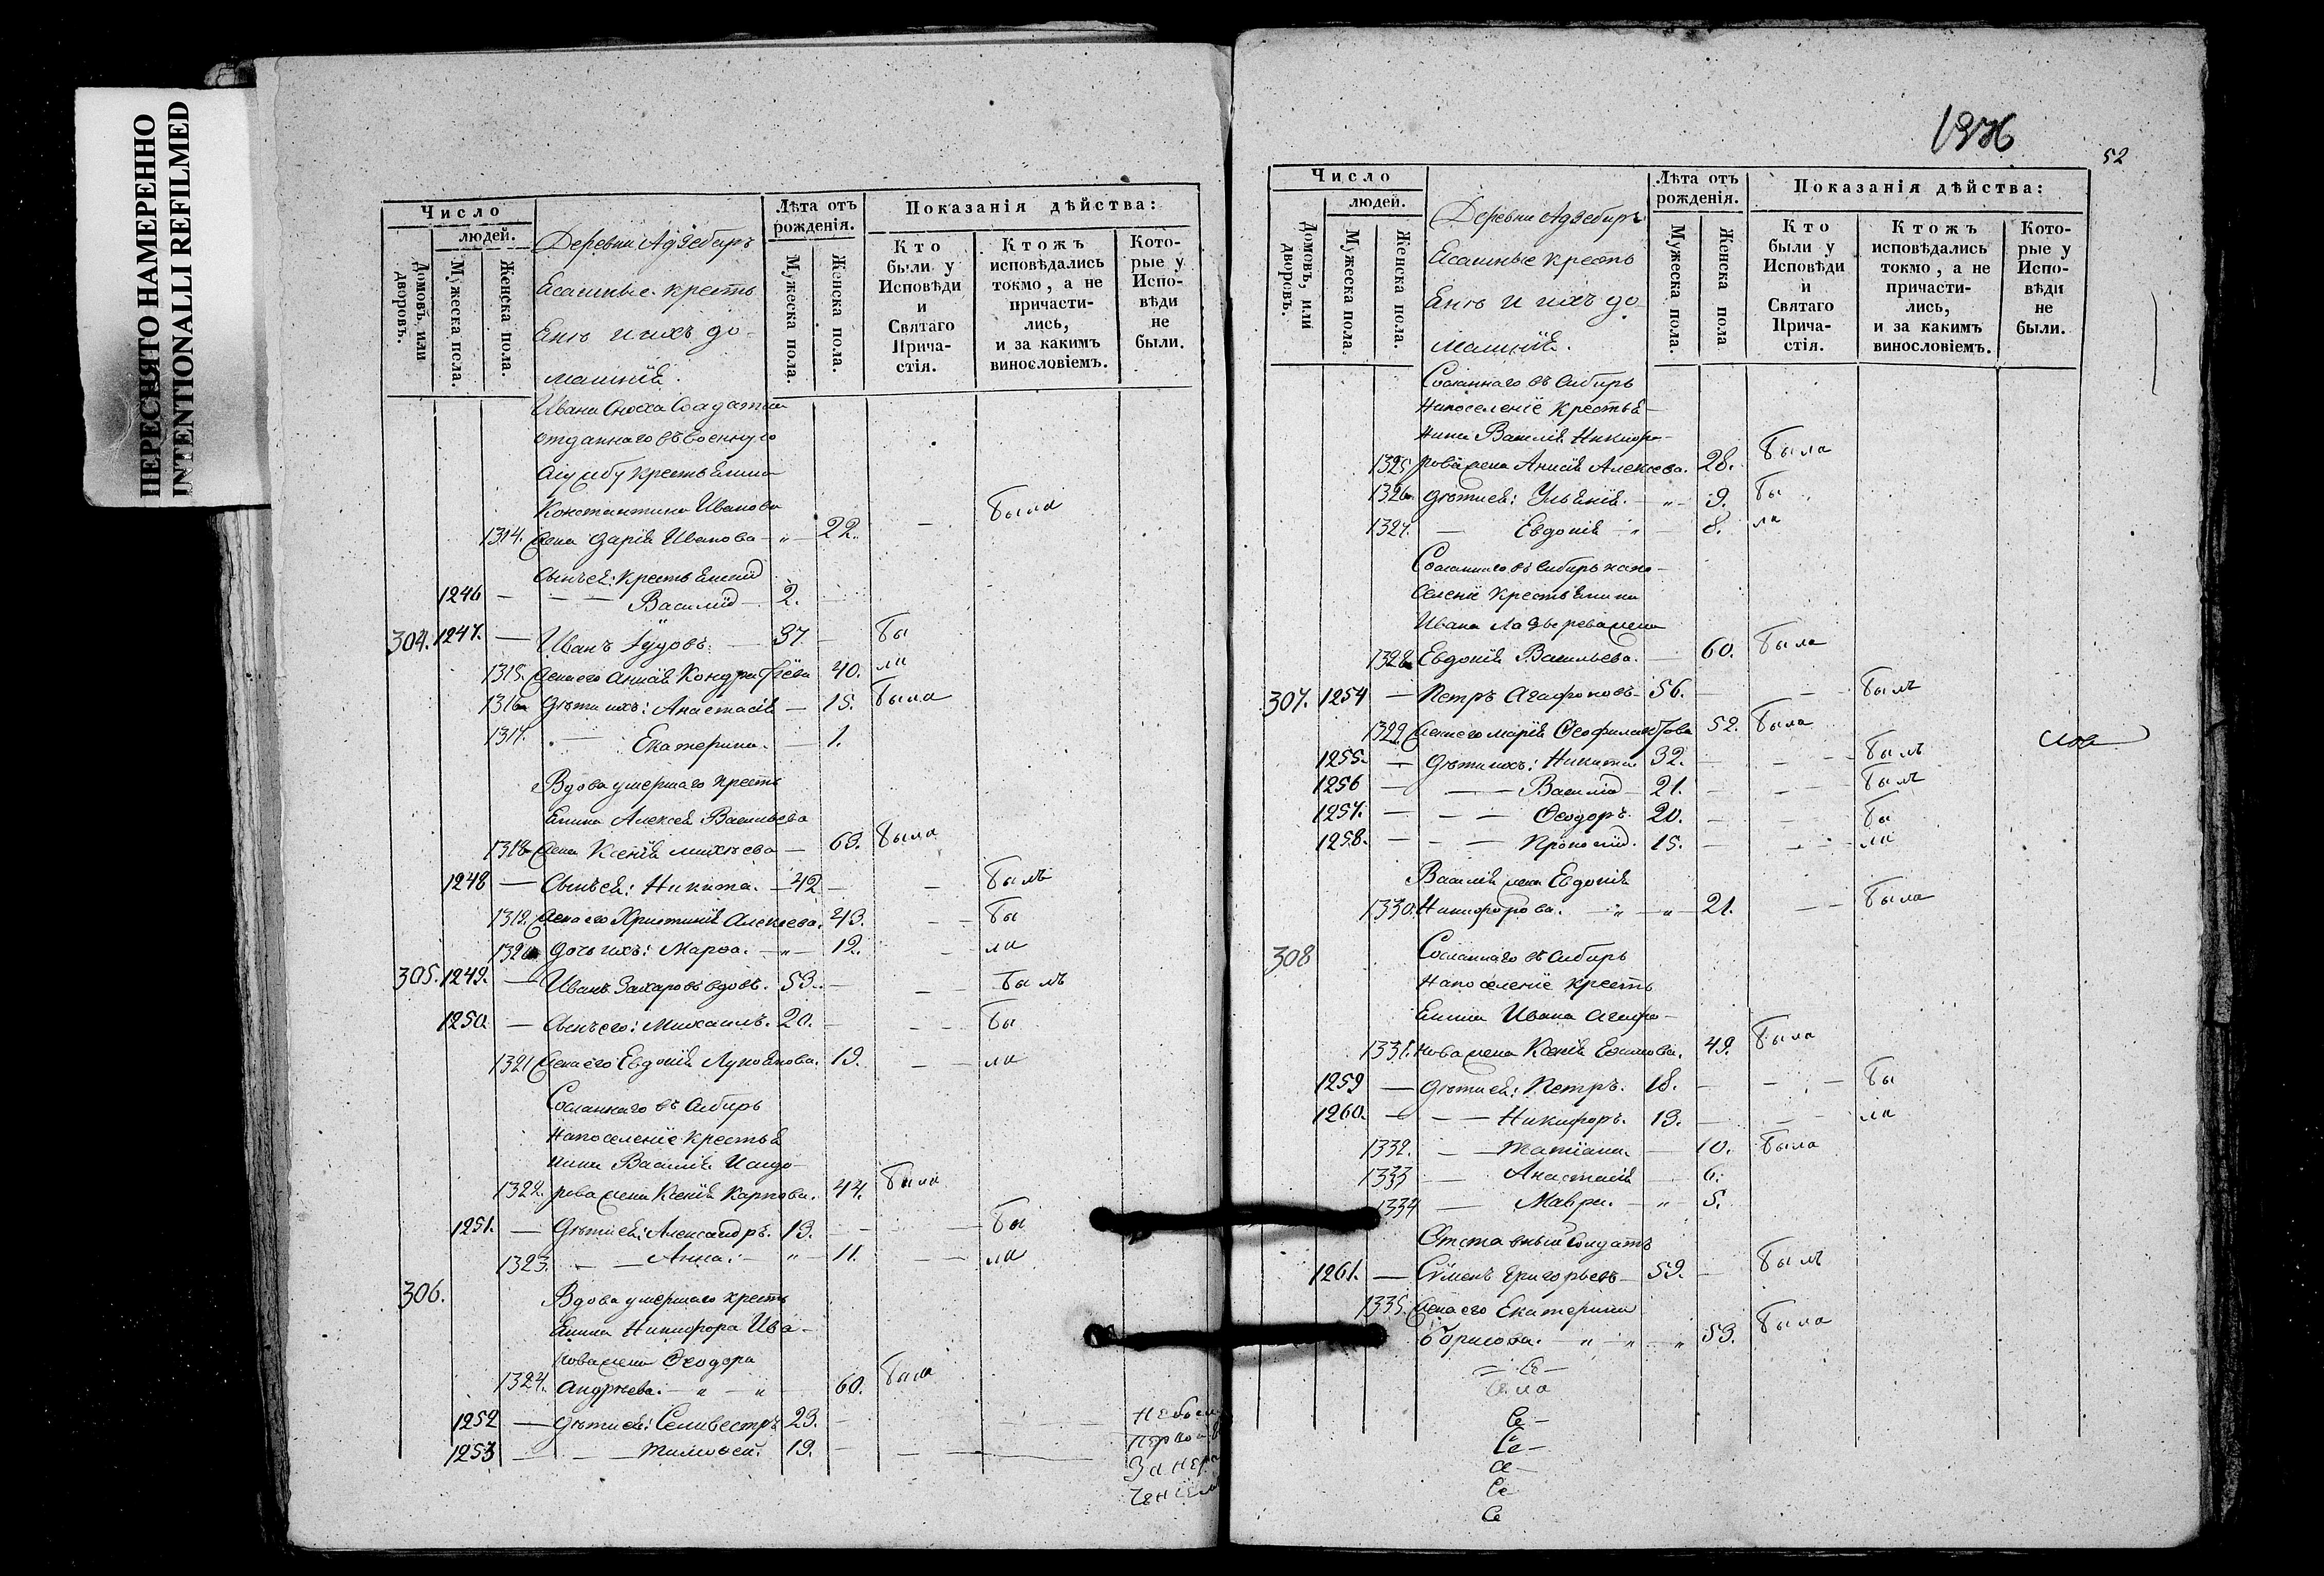 ПЕРЕСНЯТО НАМЕРЕННО
INTENTIONALLI REFILMED
Число
людей.
Домовъ, или дворовъ.
Мужеска пола.
Женска пола.
Деревни Адзебиръ
Ясашные кресть
яне и ихъ до-
машнія.
Лѣта отъ рожденія.
Мужеска пола.
Женска пола.
Показанія дѣйства:
Кто были у Исповѣди и Святаго Причастія.
Ктожъ исповѣдались токмо, а не причастились, и за какимъ винословіемъ.
Которые у Исповѣди не были.
Ивана Сноха Солдатка
отданнаго въ военную
службу крестьянина
Константина Иванова Была
1314. жена Дарія Иванова — 22.
Сынъ ея: крестьянскій
1246 — Василій — 2.
304. 1247. — Иванъ — 37. Бы
1315. жена его Анисія Кондратіева 40. ла
1316 Дѣти ихъ: Анастасія — 15. Была
1317. — Екатерина. — 1.
Вдова умершаго кресть
янина Алексѣя Васильева
1318 жена Ксенія Михѣева — 63. Была
1248 — Сынъ ея: Никита. — 42 — Былъ
1319. жена его Христинія Алексѣева. 43. Бы
1320 Дочь ихъ: Марѳа. — 12. ла
305. 1249. — Иванъ Захаровъ вдовъ. 53. — Былъ
1250 — Сынъ его: Михаилъ. 20. Бы
1321 жена его Евдокія Лукоянова. 19. ла
Сосланнаго въ Сибирь
на поселеніе крестья
нина Василія Исидо-
1322. рова жена Ксенія Карпова. 44. Была
1251. — Дѣти ея: Александръ. 13. Бы
1323. — Анна: — 11. ла
306. Вдова умершаго кресть
янина Никифора Ива-
нова жена Ѳеодора
1324. Андрѣева. — 60. Была
1252 — Дѣти ея: Селивестръ 23.
1253 — Тимоѳей. 19.
52
Число
людей.
Домовъ, или дворовъ.
Мужеска пола.
Женска пола.
Деревни Адзебиръ
Ясашные кресть
яне и ихъ до-
машнія.
Лѣта отъ рожденія.
Мужеска пола.
Женска пола
Показанія дѣйства:
Кто были у Исповѣди и Святаго Причастія.
Ктожъ исповѣдались токмо, а не причастились, и за какимъ винословіемъ.
Которые у Исповѣди не были.
Сосланнаго въ Сибирь
на поселеніе крестья-
нина Василія Никифо-
1325 рова жена Анисія Алексѣева. 28. Была
1326 Дѣти ея: Ульянія. — 9. Бы
1327. — Евдокія — 8. ла
Сосланнаго въ Сибирь на по-
селеніе крестьянина
Ивана жена
1328 Евдокія Васильева. — 60. Была
307. 1254 — Петръ Агафоновъ — 56. — Былъ
1329 жена его Марія Ѳеофилактова 52. Была
1255. — Дѣти ихъ: Никита 32. — Былъ
1256 — Василій — 21. — Былъ
1257. — Ѳеодоръ. 20. — Бы
1258. — Прокопій. 15. — ли
Василія жена Евдокія
1330. Никифорова. — 21. — Была
308 Сосланнаго въ Сибирь
на поселеніе кресть
янина Ивана Агафо-
1331. нова жена Ксенія Ефимова. 49. Была
1259 — Дѣти ея: Петръ. 18. — Бы
1260. — Никифоръ. 13. — ли
1332. — Татіана. — 10. Была
1333 — Анастасія — 6.
1334 — Мавра. — 5.
Отставный Солдатъ
1261. — Сѵмеонъ Григорьевъ — 59. — Былъ
1335. жена его Екатерина
Борисова. — 53. Была